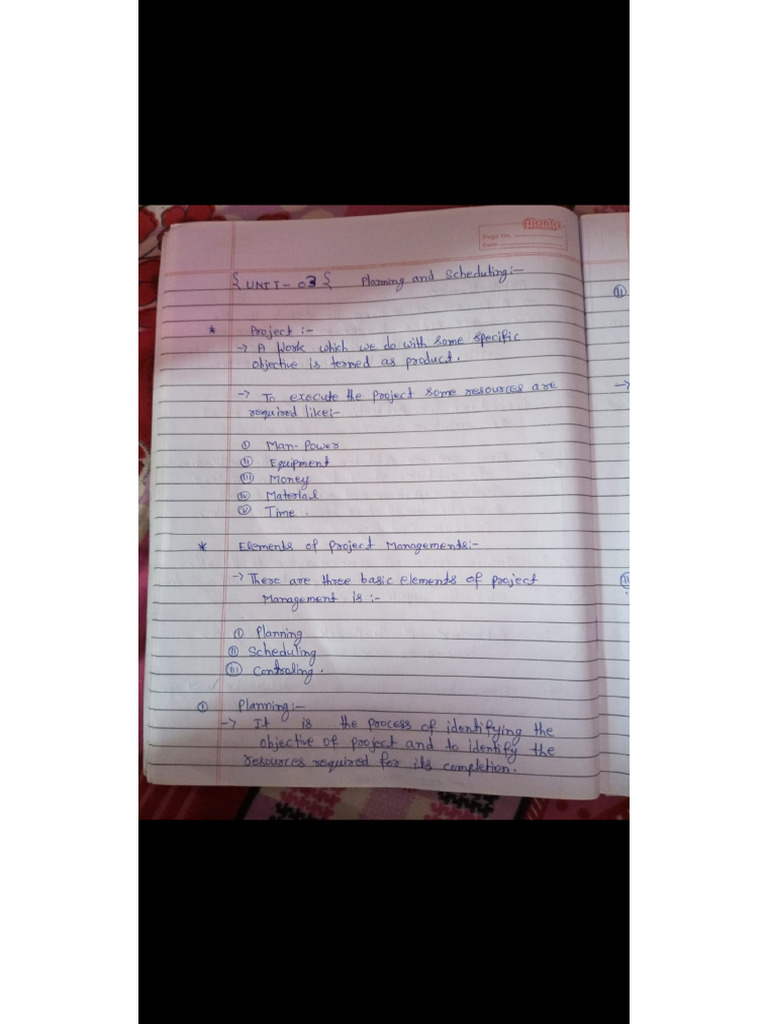 Page No.
Date
{ UNIT - 03 { Planning and Scheduling:-
* Project :-
-> A Work which we do with some specific
objective is termed as product.
-> To execute the project some resources are
required like:-
(i) Man-Power
(ii) Equipment
(iii) Money
(iv) Material
(v) Time .
* Elements of Project Managements:-
-> There are three basic elements of project
Management is :-
(i) Planning
(ii) Scheduling
(iii) Controling .
(i) Planning:-
-> It is the process of identifying the
objective of project and to identify the
resources required for its completion.
(ii)
->